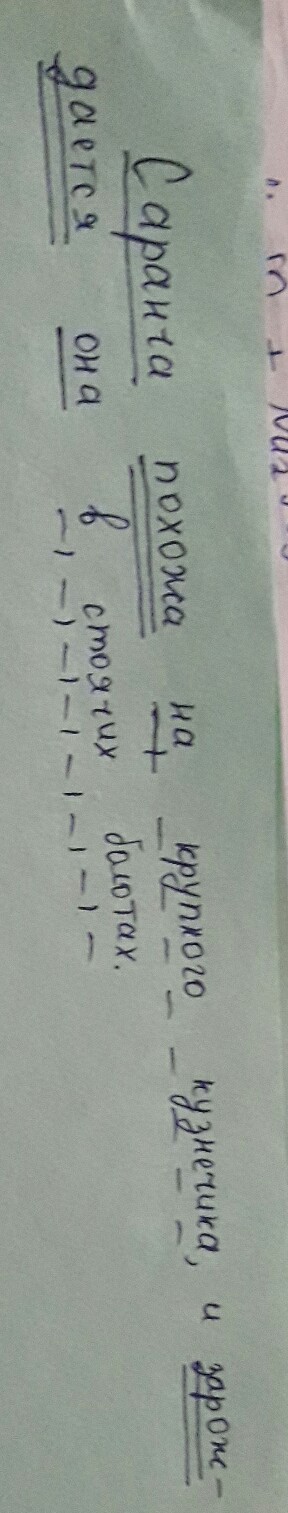 Саранча похожа на крупного кузнечика, и зарож-
дается она в стоячих болотах.